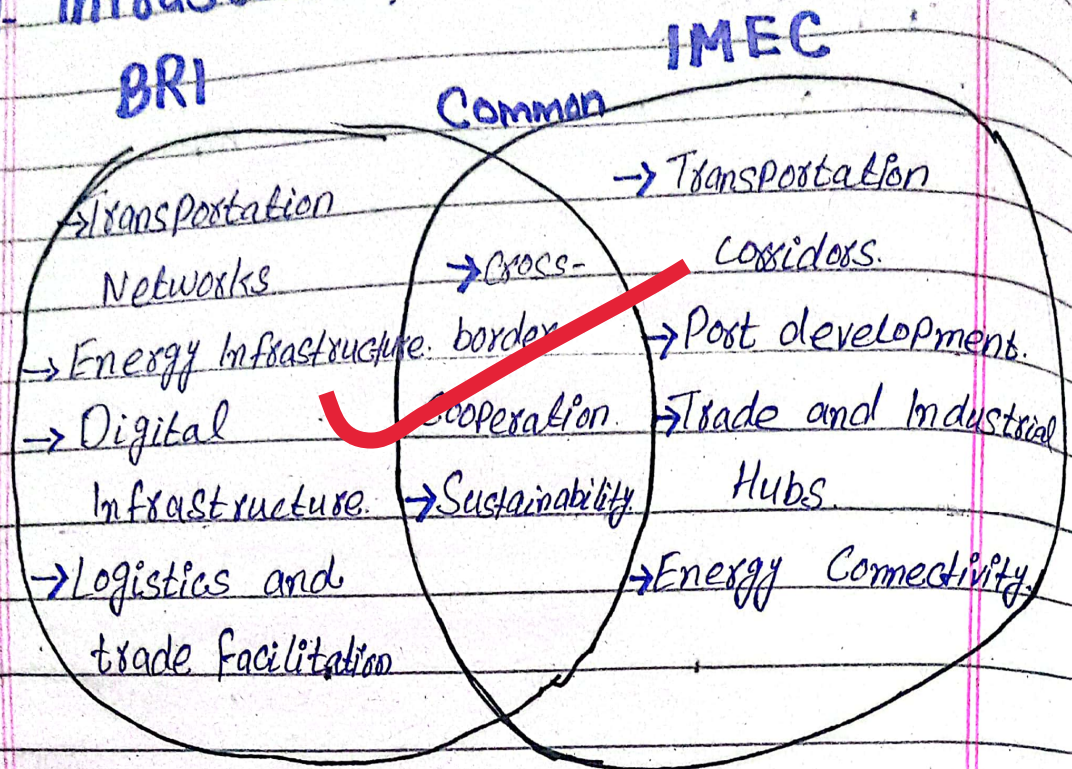 IMEC
BRI
Common
→Transportation
Networks
→Energy Infrastructure.
→Digital
Infrastructure.
→Logistics and
trade facilitation
→Cross-
border
Cooperation.
→Sustainability.
→Transportation
Corridors.
→Port development.
→Trade and Industrial
Hubs.
→Energy Connectivity.